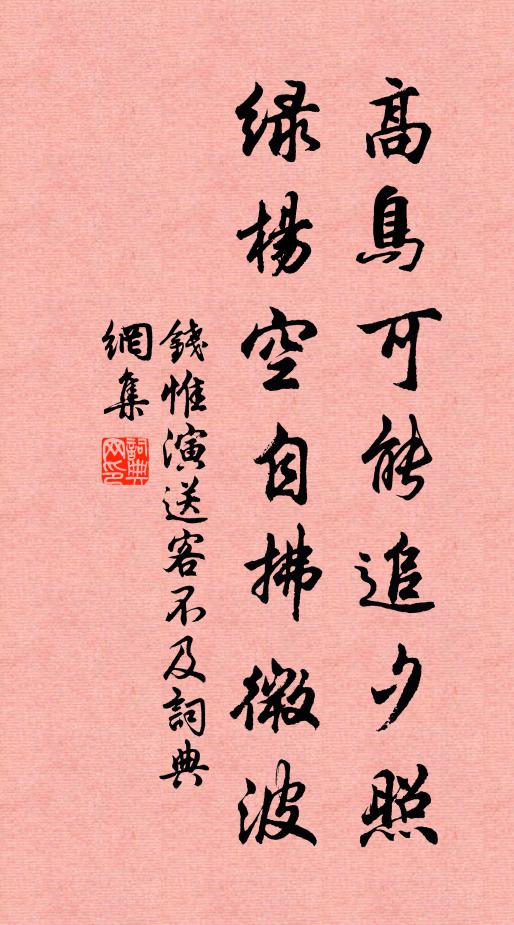 高鳥可能追夕照
綠楊空自拂微波
錢惟演送客不及詞典
網集
詞典
网印